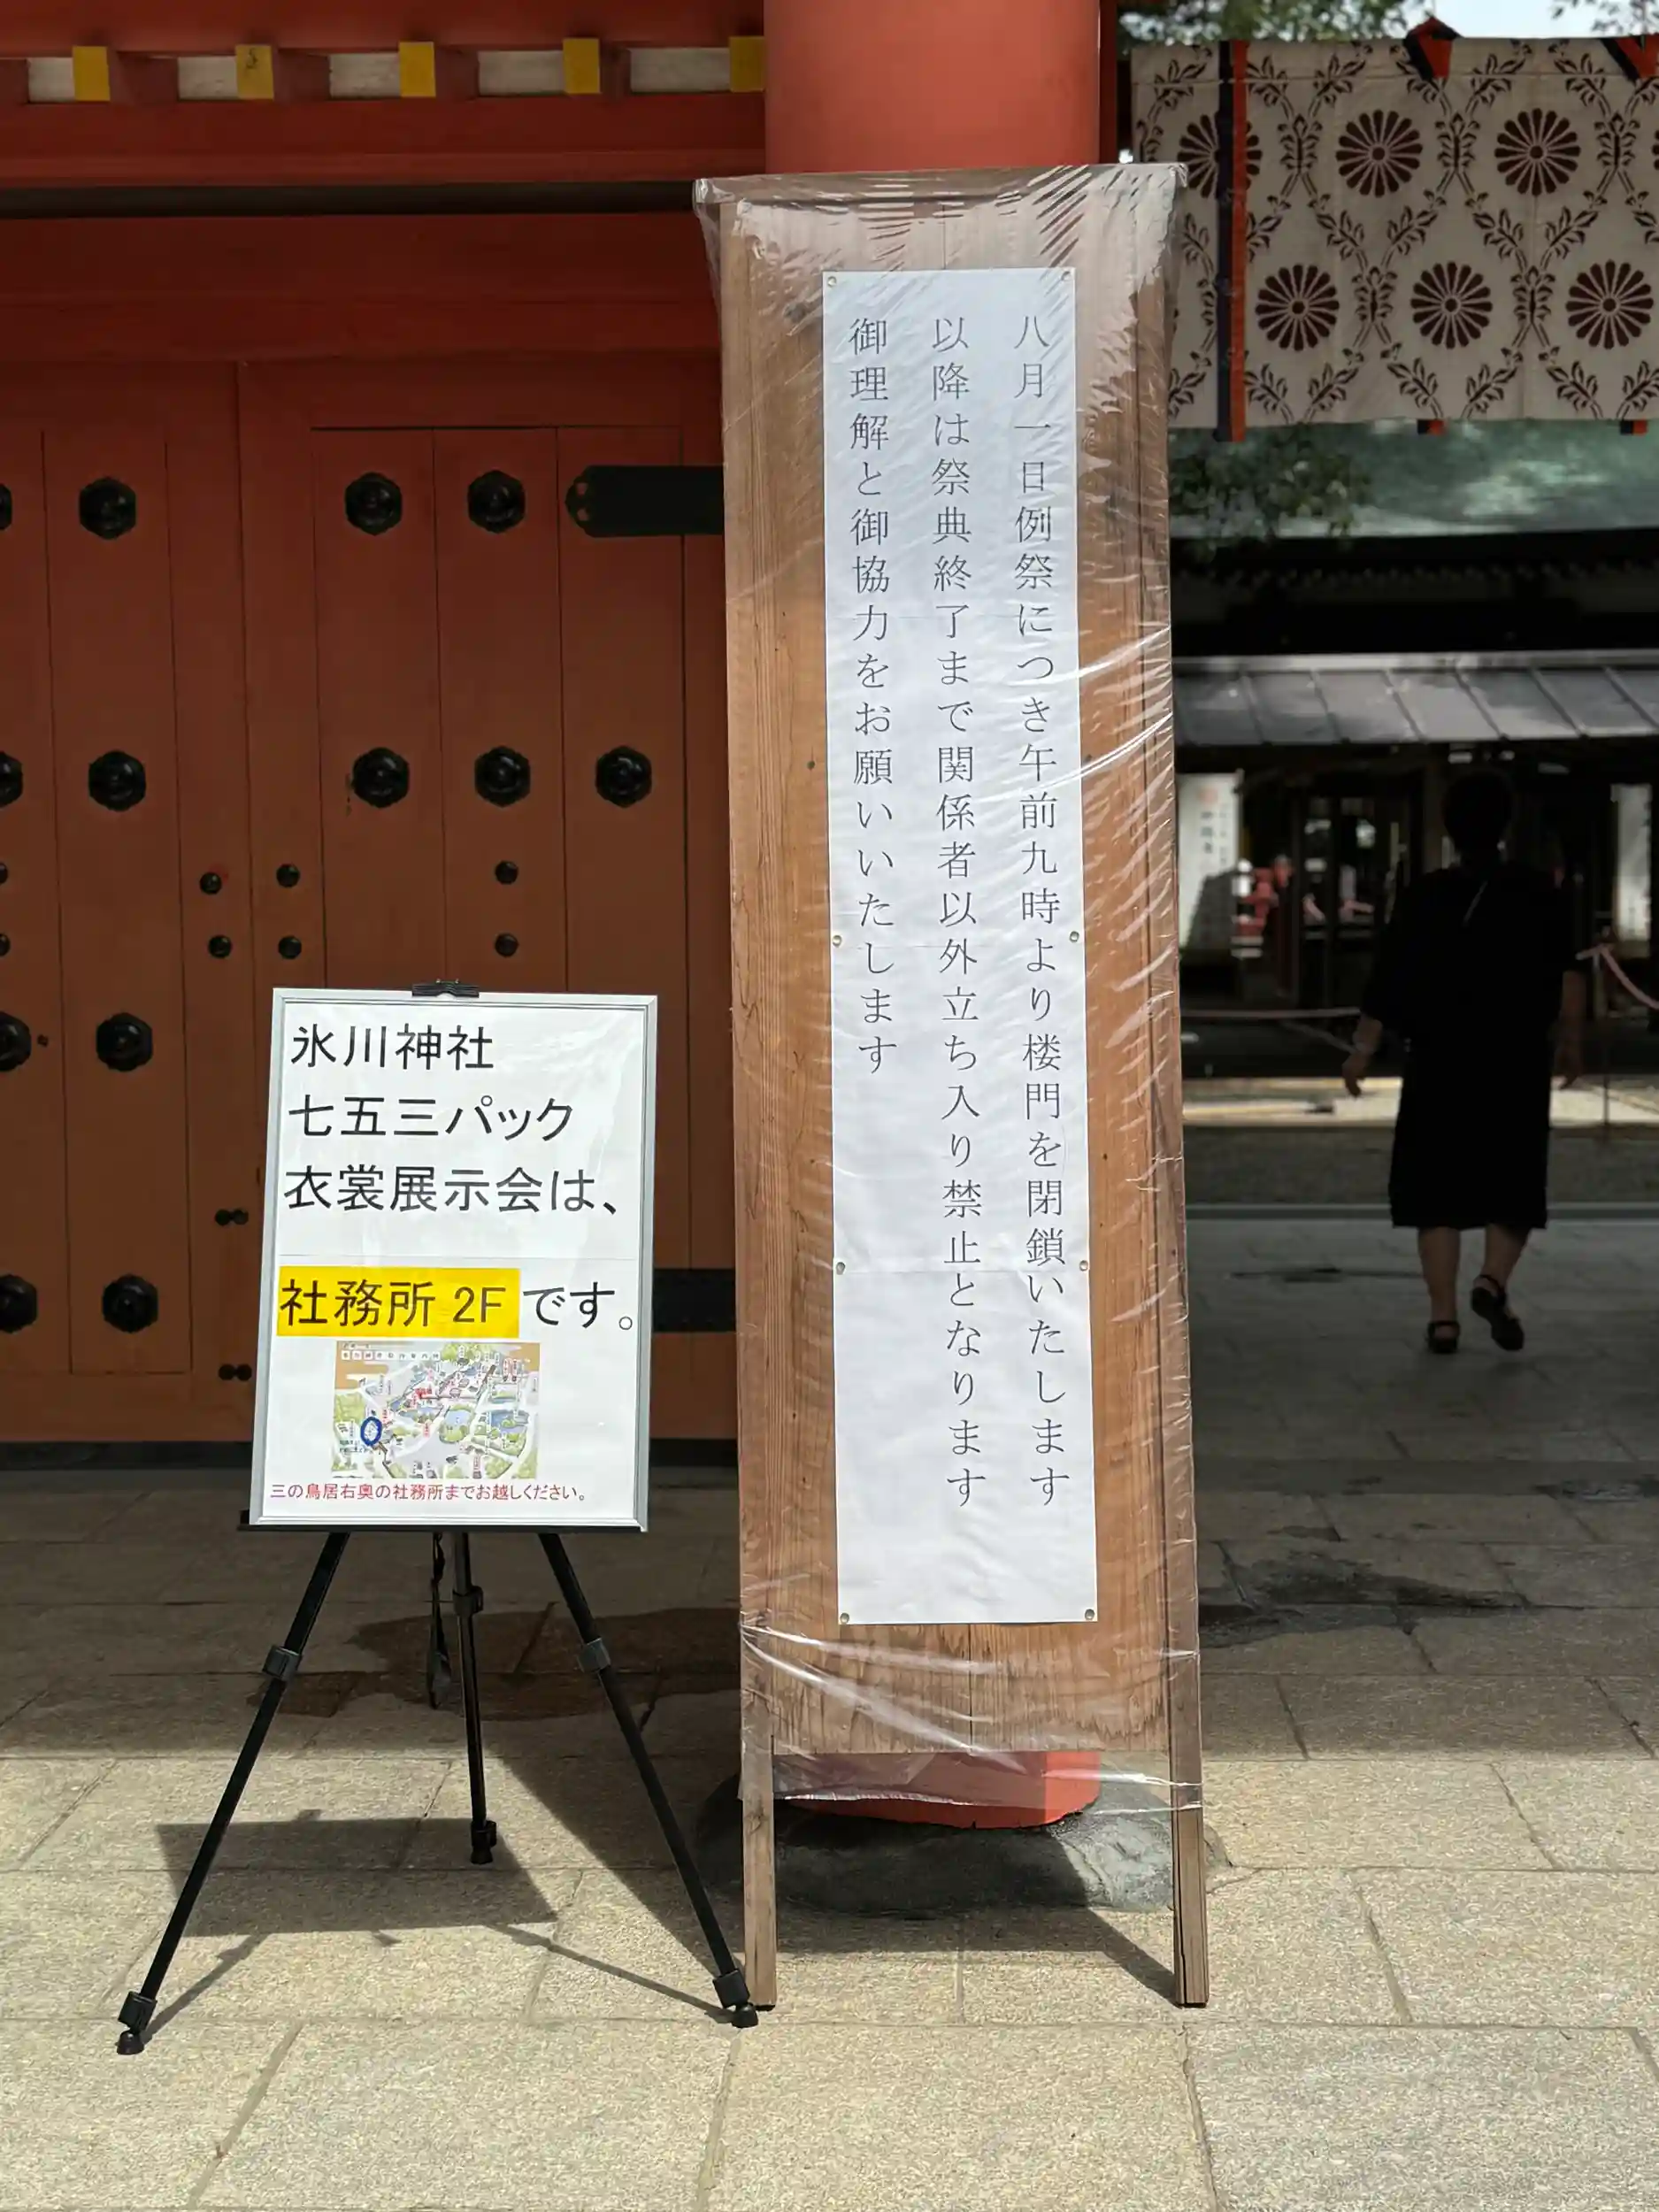 八月一日例祭につき午前九時より楼門を閉鎖いたします
以降は祭典終了まで関係者以外立ち入り禁止となります
御理解と御協力をお願いいたします
氷川神社
七五三パック
衣裳展示会は、
社務所 2F です。
三の鳥居右奥の社務所までお越しください。